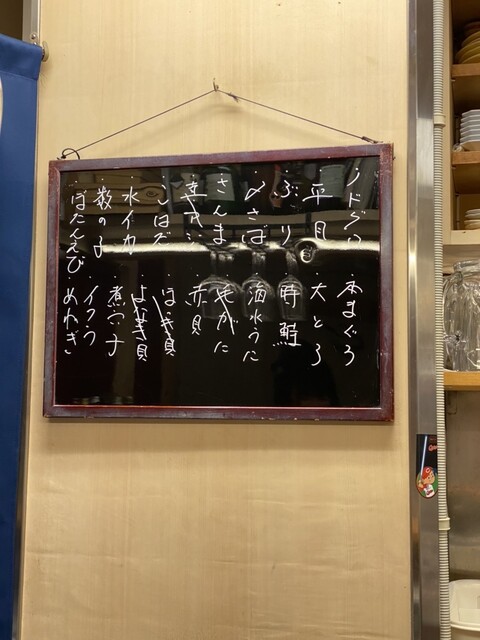 ・ノドグロ
・平目
・ぶり
・〆さば
・さんま
・こはだ
・水イカ
・数の子
・ぼたんえび
・本まぐろ
・大とろ
・時鮭
・海水うに
・毛がに
・赤貝
・ほっき貝
・よなき貝
・煮穴子
・イクラ
・めねぎ